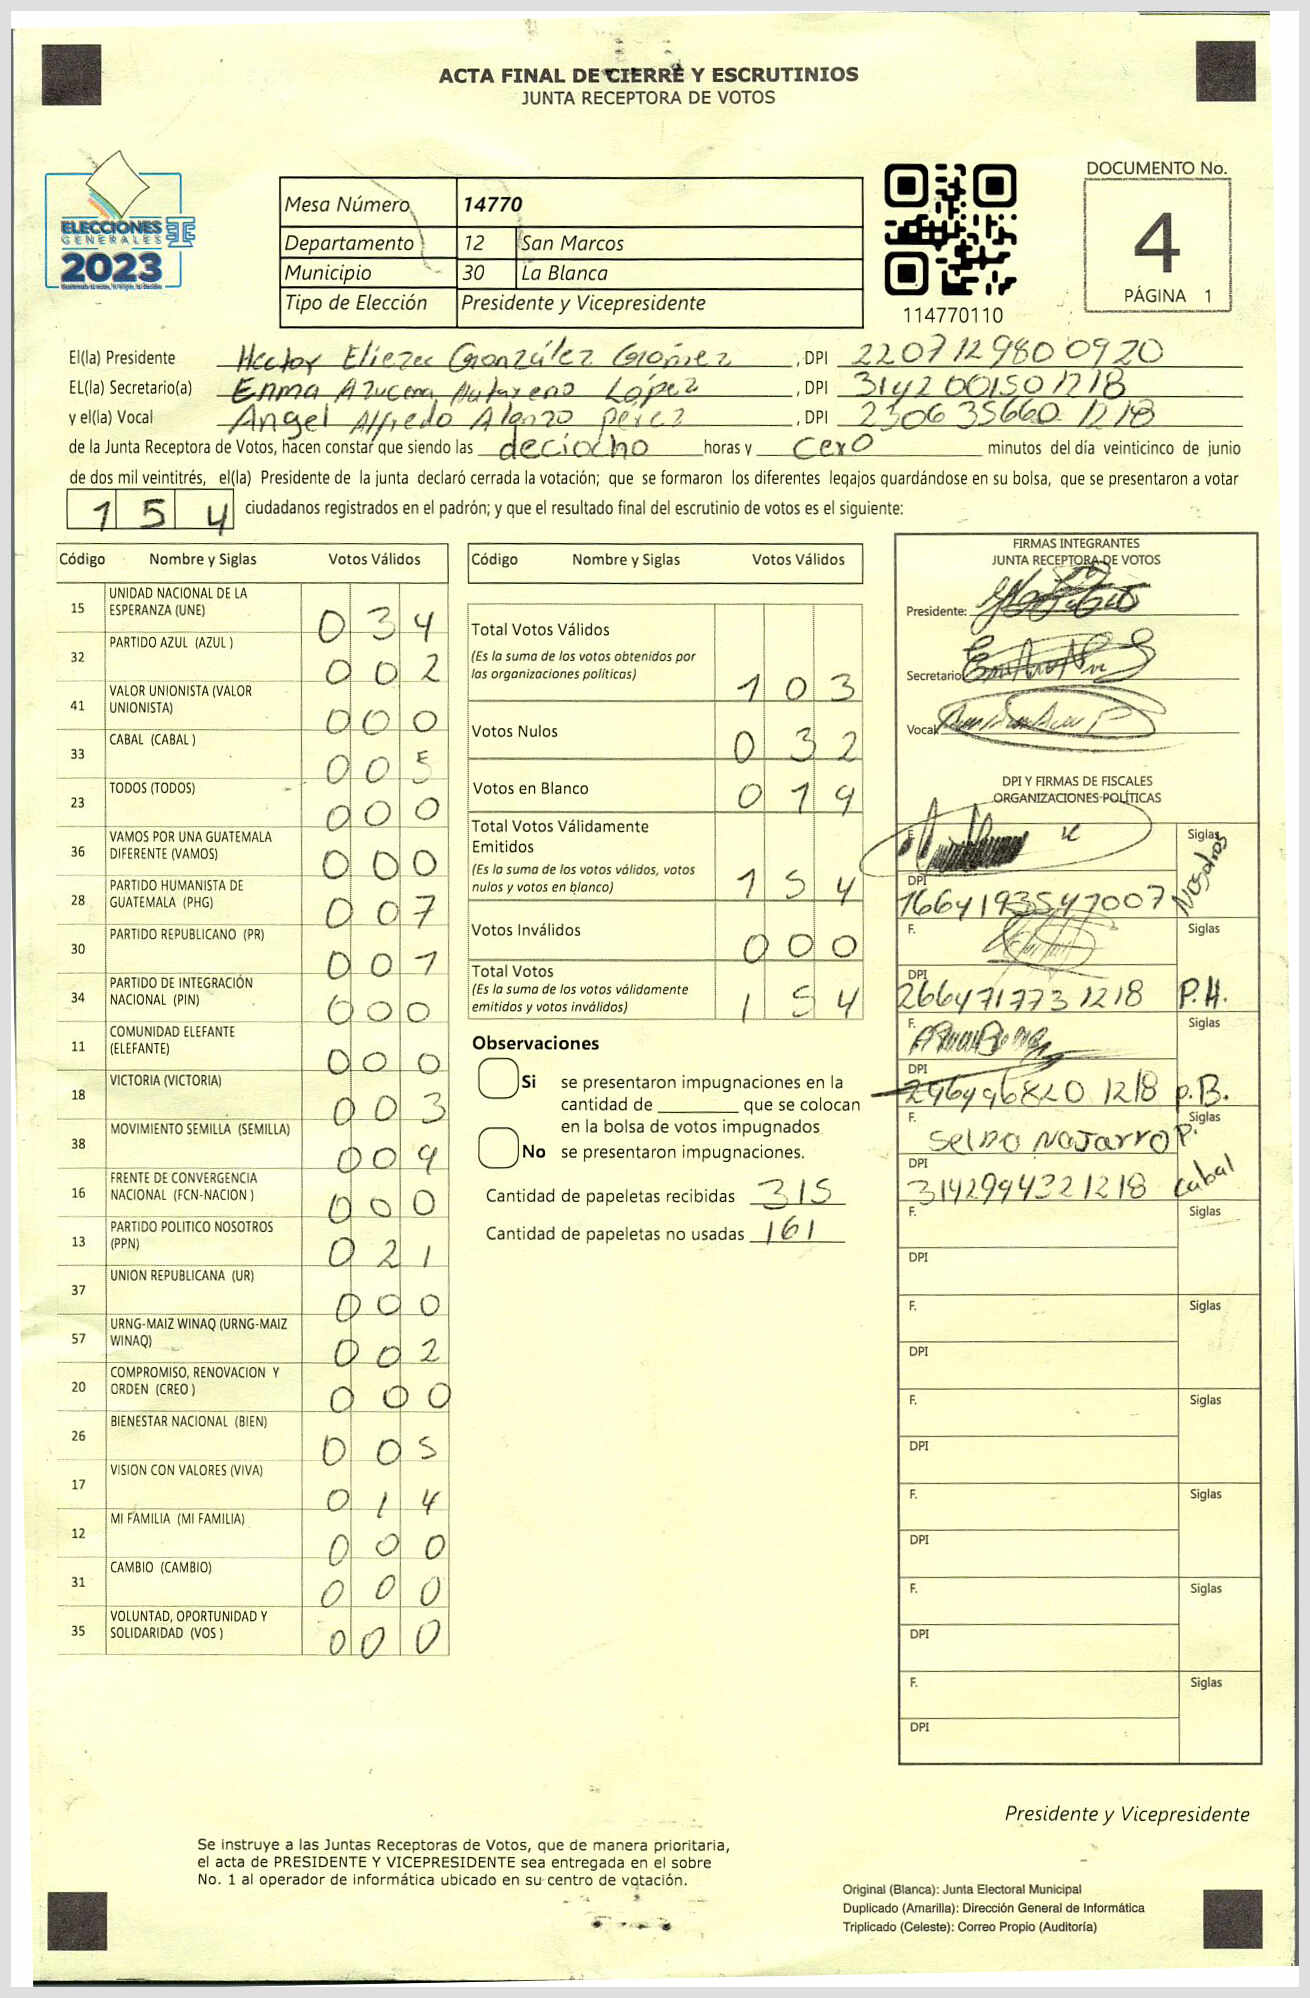 ACTA FINAL DE CIERRE Y ESCRUTINIOS
JUNTA RECEPTORA DE VOTOS
ELECCIONES
GENERALES
2023
Mesa Número 14770
Departamento 12 San Marcos
Municipio 30 La Blanca
Tipo de Elección Presidente y Vicepresidente
114770110
DOCUMENTO No.
4
PÁGINA 1
El(la) Presidente Hector Eliezer González Gómez , DPI 2207129800920
EL(la) Secretario(a) Enma Azucena López , DPI 3142001501218
y el(la) Vocal Angel Alfredo Alonzo Pérez , DPI 2306356601218
de la Junta Receptora de Votos, hacen constar que siendo las deciocho horas y cero minutos del día veinticinco de junio
de dos mil veintitrés, el(la) Presidente de la junta declaró cerrada la votación; que se formaron los diferentes legajos guardándose en su bolsa, que se presentaron a votar
154 ciudadanos registrados en el padrón; y que el resultado final del escrutinio de votos es el siguiente:
Código Nombre y Siglas Votos Válidos
15 UNIDAD NACIONAL DE LA
ESPERANZA (UNE) 034
32 PARTIDO AZUL (AZUL ) 002
41 VALOR UNIONISTA (VALOR
UNIONISTA) 000
33 CABAL (CABAL ) 005
23 TODOS (TODOS) 000
36 VAMOS POR UNA GUATEMALA
DIFERENTE (VAMOS) 000
28 PARTIDO HUMANISTA DE
GUATEMALA (PHG) 007
30 PARTIDO REPUBLICANO (PR) 001
34 PARTIDO DE INTEGRACIÓN
NACIONAL (PIN) 000
11 COMUNIDAD ELEFANTE
(ELEFANTE) 000
18 VICTORIA (VICTORIA) 003
38 MOVIMIENTO SEMILLA (SEMILLA) 009
16 FRENTE DE CONVERGENCIA
NACIONAL (FCN-NACION ) 000
13 PARTIDO POLITICO NOSOTROS
(PPN) 021
37 UNION REPUBLICANA (UR) 000
57 URNG-MAIZ WINAQ (URNG-MAIZ
WINAQ) 002
20 COMPROMISO, RENOVACION Y
ORDEN (CREO ) 000
26 BIENESTAR NACIONAL (BIEN) 005
17 VISION CON VALORES (VIVA) 014
12 MI FAMILIA (MI FAMILIA) 000
31 CAMBIO (CAMBIO) 000
35 VOLUNTAD, OPORTUNIDAD Y
SOLIDARIDAD (VOS ) 000
Código Nombre y Siglas Votos Válidos
Total Votos Válidos
(Es la suma de los votos obtenidos por
las organizaciones políticas) 103
Votos Nulos 032
Votos en Blanco 019
Total Votos Válidamente
Emitidos
(Es la suma de los votos válidos, votos
nulos y votos en blanco) 154
Votos Inválidos 000
Total Votos
(Es la suma de los votos válidamente
emitidos y votos inválidos) 154
Observaciones
Si se presentaron impugnaciones en la
cantidad de ________ que se colocan
en la bolsa de votos impugnados
No se presentaron impugnaciones.
Cantidad de papeletas recibidas 315
Cantidad de papeletas no usadas 161
FIRMAS INTEGRANTES
JUNTA RECEPTORA DE VOTOS
Presidente:
Secretario
Vocal
DPI Y FIRMAS DE FISCALES
ORGANIZACIONES POLÍTICAS
F. Siglas Nosotros
DPI 1664193547007
F. Siglas P.H.
DPI 2664717731218
F. Siglas P.B.
DPI 2964968201218
F. Selbo Najarro P. Siglas cabal
DPI 3142994321218
F. Siglas
DPI
F. Siglas
DPI
F. Siglas
DPI
F. Siglas
DPI
F. Siglas
DPI
F. Siglas
DPI
Presidente y Vicepresidente
Se instruye a las Juntas Receptoras de Votos, que de manera prioritaria,
el acta de PRESIDENTE Y VICEPRESIDENTE sea entregada en el sobre
No. 1 al operador de informática ubicado en su centro de votación.
Original (Blanca): Junta Electoral Municipal
Duplicado (Amarilla): Dirección General de Informática
Triplicado (Celeste): Correo Propio (Auditoría)